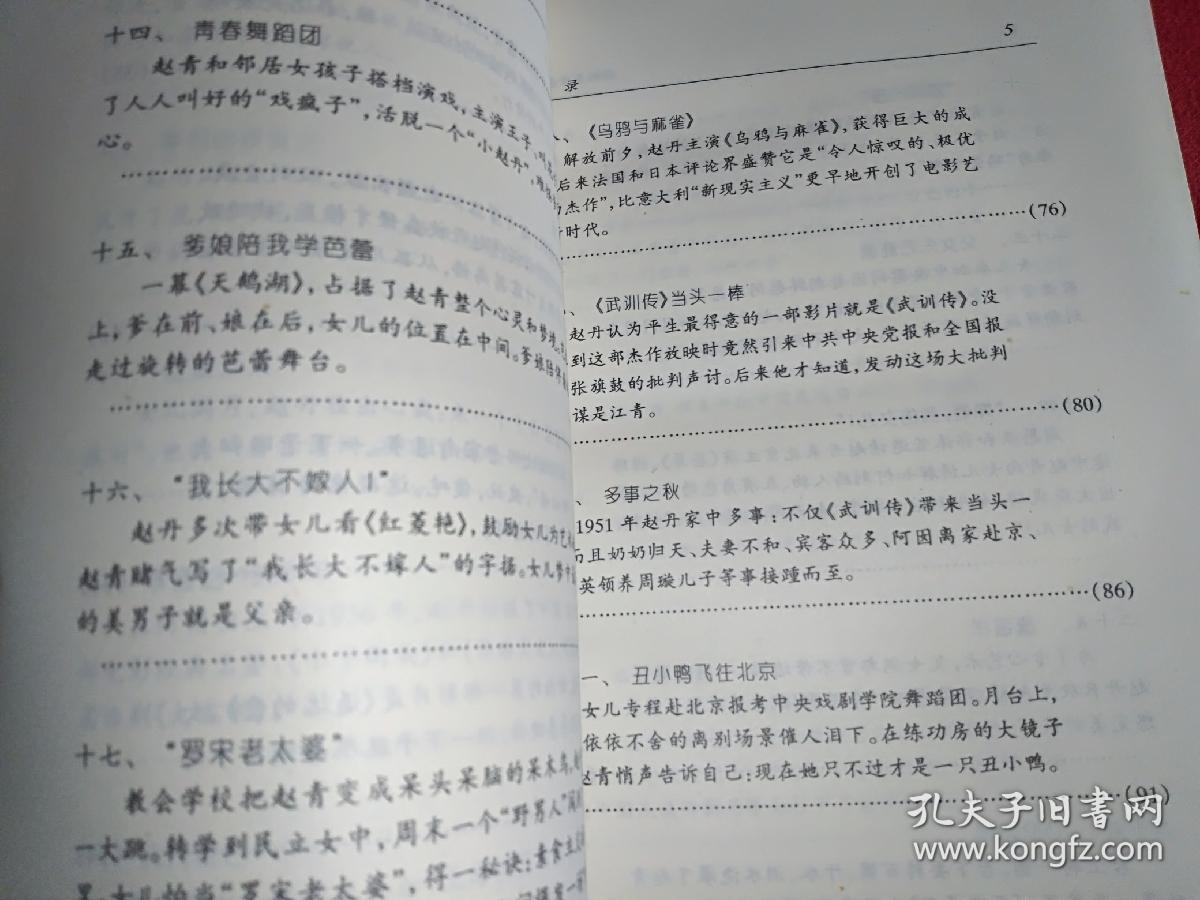 十四、 青春舞蹈团
赵青和邻居女孩子搭档演戏,主演王子
了人人叫好的“戏疯子”,活脱一个“小赵丹”
心。
十五、 爹娘陪我学芭蕾
一幕《天鹅湖》,占据了赵青整个心灵和梦境
上,爹在前、娘在后,女儿的位置在中间。爹娘陪伴
走过旋转的芭蕾舞台。
十六、 “我长大不嫁人!”
赵丹多次带女儿看《红菱艳》,鼓励女儿为艺
赵青赌气写了“我长大不嫁人”的字据。女儿梦
的美男子就是父亲。
十七、 “罗宋老太婆”
教会学校把赵青变成呆头呆脑的呆木鸟
一大跳。转学到民立女中,周末一个“野男人”
女儿怕当“罗宋老太婆”,得一秘诀:素食
录 5
《乌鸦与麻雀》
解放前夕,赵丹主演《乌鸦与麻雀》,获得巨大的成
后来法国和日本评论界盛赞它是“令人惊叹的、极优
杰作”,比意大利“新现实主义”更早地开创了电影艺
时代。
(76)
《武训传》当头一棒
赵丹认为平生最得意的一部影片就是《武训传》。没
到这部杰作放映时竟然引来中共中央党报和全国报
张旗鼓的批判声讨。后来他才知道,发动这场大批判
谋是江青。
(80)
、 多事之秋
1951年赵丹家中多事:不仅《武训传》带来当头一
而且奶奶归天、夫妻不和、宾客众多、阿囡离家赴京、
英领养周璇儿子等事接踵而至。
(86)
一、 丑小鸭飞往北京
女儿专程赴北京报考中央戏剧学院舞蹈团。月台上,
依依不舍的离别场景催人泪下。在练功房的大镜子
赵青悄声告诉自己:现在她只不过才是一只丑小鸭。
(91)
孔夫子旧书网
www.kongfz.com